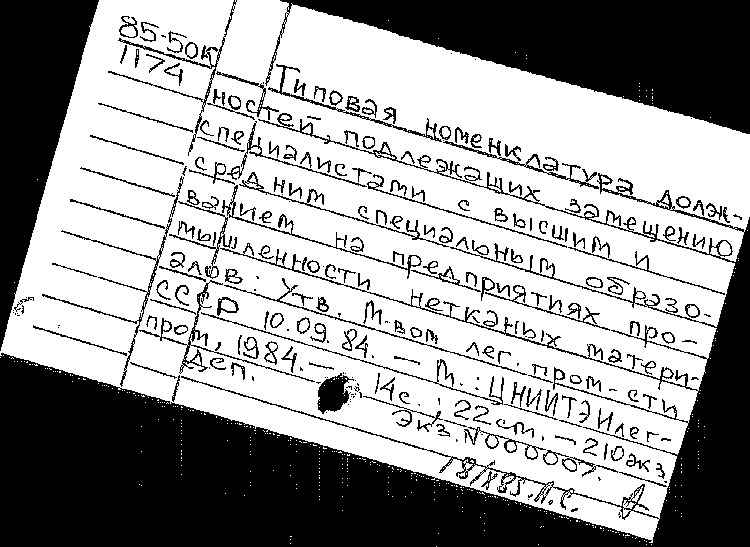 85-50К
1174
Типовая номенклатура долж-
ностей, подлежащих замещению
специалистами с высшим и
средним специальным образо-
ванием на предприятиях про-
мышленности нетканых матери-
алов: Утв. М-вом лег. пром-сти
СССР 10.09.84. — М.: ЦНИИТЭИлег-
пром, 1984. — 14с.; 22 cm. — 210экз
Деп. Экз. N000007.
18/X85.